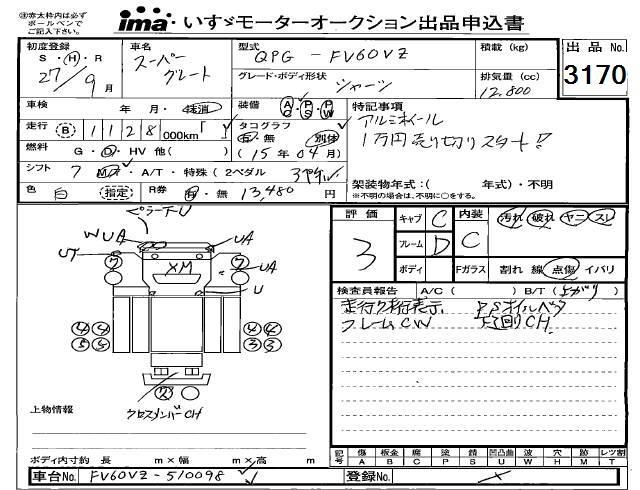 ※赤太枠内は必ず
ボールペンで
ご記入下さい。
ima いすゞモーターオークション出品申込書
初度登録
S・H・R
27/9月
車名
スーパー
グレート
型式
QPG - FV60VZ
積載(kg)
出品No.
3170
グレード・ボディ形状
シャーシ
排気量(cc)
12,800
車検 年 月・抹消
装備 AC PS PW
特記事項
アルミホイール
1万円売り切りスタート!!
走行 B 1128 000km「 」
タコグラフ
有・無 別体
(15年04月)
燃料 G・D・HV 他( )
シフト 7 MT・A/T・特殊(2ペダル
架装物年式:( 年式)・不明
※不明の場合は、不明に○をする。
色 白 指定 R券 有・無 13,480 円
ピラーナシU
WUA
UA
ST
7
XM
7
UA
U
4 4
5 5
4 4
3 3
2
クロスメンバーCH
上物情報
ボディ内寸約 長 m×幅 m×高 m
車台No. FV60VZ-510098
評価
3
キャブ C
フレーム D
ボディ
内装
C
Fガラス
汚れ・破れ・ヤニ・スレ
割れ 線 点傷 イバリ
検査員報告 A/C( ) B/T(上がり)
走行ク桁表示 PSオイルベタ
フレームCW 下回りCH
記号
傷 A
板金 B
腐 C
塗 P
錆 S
凹凸曲 U
波 W
穴 H
跡 M
レツ割 T
登録No.